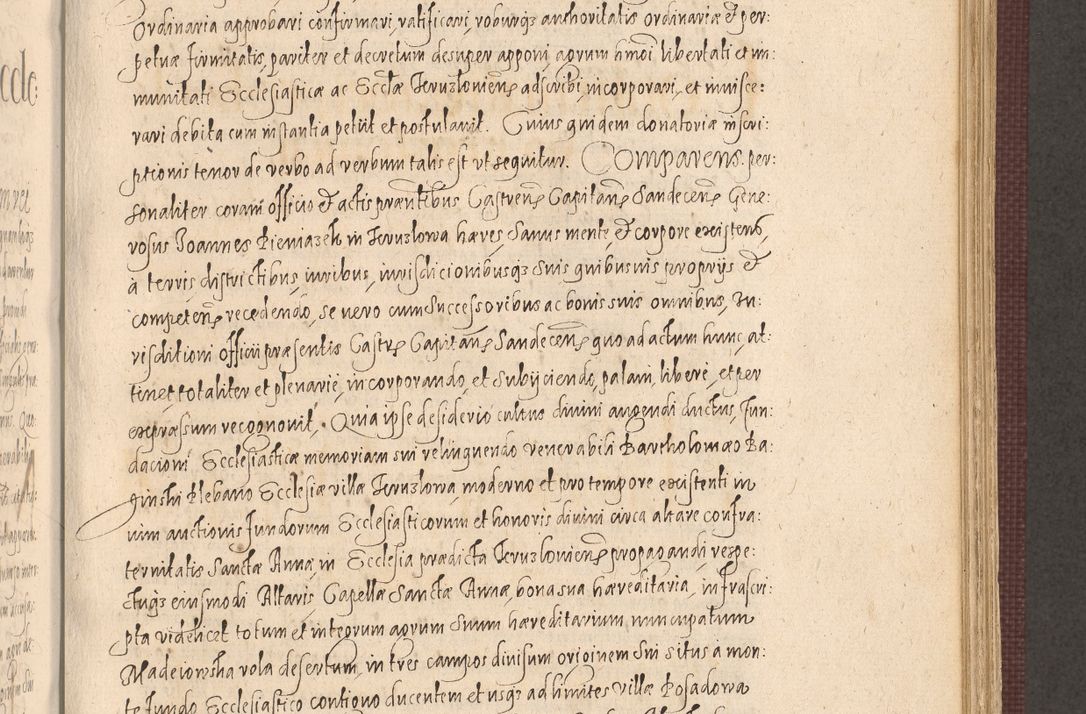 Ordinaria approbari confirmari, ratificari, roburq3 authoritatis ordinariæ et per:
petuæ firmitatis, pariter et decretum desuper apponi, agrum hmoi libertati et im:
munitati Ecclesiasticæ ac Ecctæ Jeruzlouien adscribi, incorporari, et inuisce:
rari debita cum instantia petiit et postulauit. Cuius quidem donatoriæ inscri:
ptionis tenor de verbo ad verbum talis est vt sequitur. Comparens per:
sonaliter coram officio et actis præntibus Castren Capitan Sandecen Gene:
rosus Joannes Pieniazek in Jeruzlowa hæres, Sanus mente, et corpore existens,
à terris, districtibus, iuribus, iurisdicionibusq3 suis quibusuis proprijs et
competen recedendo, se uero cum successoribus ac bonis suis omnibus, Iu:
risditioni officii præsentis Castr Capitan Sandecen quo ad actum hunc at:
tinet totaliter et plenarie, incorporando, et subijciendo, palam, libere, et per
expræssum recognouit. Quia ipse desiderio cultus diuini augendi ductus, fun:
dacioni Ecclesiasticæ memoriam sui relinquendo venerabili Bartholomæo Ba:
ginski Plebano Ecclesiæ villæ Jeruzlowa, moderno et pro tempore existenti in
uim auctionis fundorum Ecclesiasticorum et honoris diuini circa altare confra:
ternitatis Sanctæ Annæ, in Ecclesia prædicta Jeruzlouien propagandi, respe:
ctuq3 eiusmodi Altaris Capellæ Sanctæ Annæ, bona sua hæreditaria, infrascri:
pta videlicet totum et integrum agrum Suum hæreditarium nuncupatum
Madeiowska rola desertum, in tres campos diuisum originem Sui situs a mon:
te fundo Ecclesiastico contiguo ducentem et usq3 ad limites villæ Posadowa